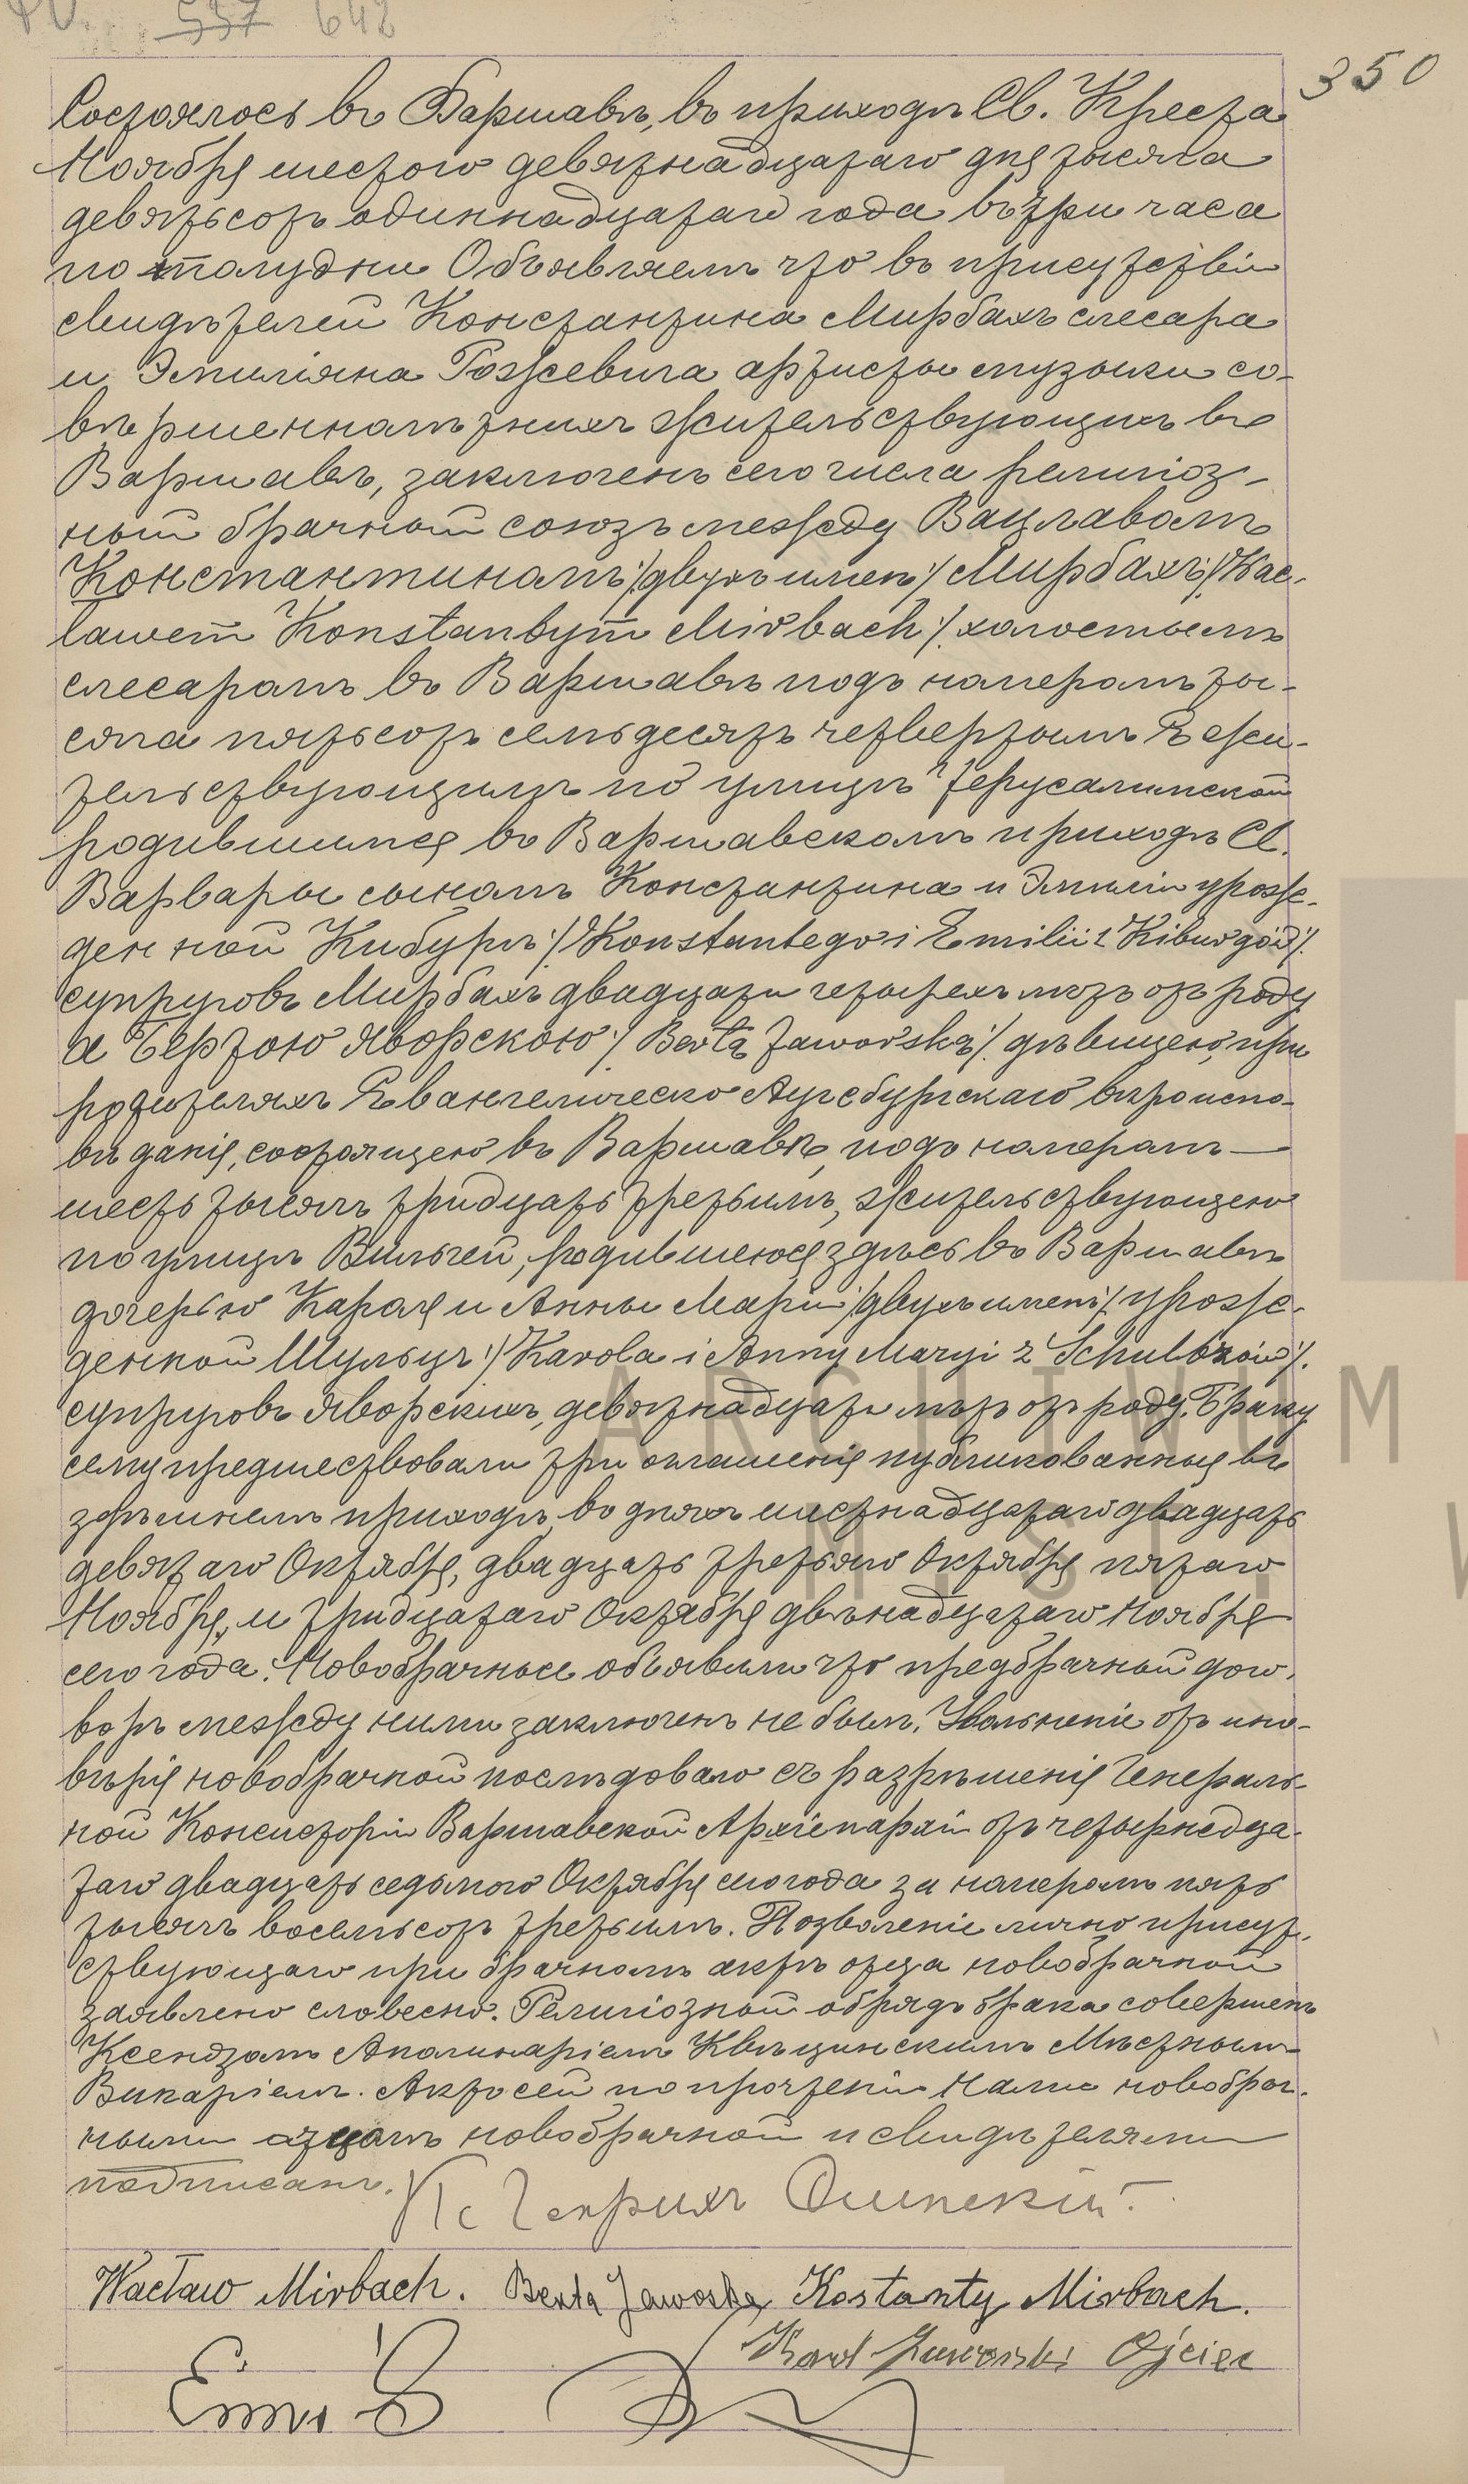 537 642
350
Состоялось въ Варшавѣ, въ приходѣ Св. Креста
Ноября шестого девятнадцатаго дня тысяча
девятьсотъ одиннадцатаго года въ три часа
по полудни Объявляемъ что въ присутствіи
свидѣтелей Константина Мирбахъ слесара
и Эмиліяна Рожевича артисты музыки со-
вѣршеннолѣтнихъ жительствующихъ въ
Варшавѣ, заключенъ сего числа религіоз-
ный брачный союзъ между Вацлавомъ
Константиномъ /:двухъ именъ:/ Мирбахъ /:Wac-
ławem Konstantym Mirbach:/ холостымъ
слесаромъ въ Варшавѣ подъ номеромъ ты-
сяча пятьсотъ семьдесятъ четвертымъ Е жи-
тельствующимъ по улицѣ Іерусалимской
родившимся въ Варшавскомъ приходѣ Св.
Варвары сыномъ Константина и Эмиліи урожде-
денной Кибургъ /:Konstantego i Emilii z Kiburgów:/
супруговъ Мирбахъ двадцати четырехъ лѣтъ отъ роду
а Бертою Яворскою /:Berta Jaworska:/ дѣвицею, при
родителяхъ Евангелическо Аугсбургскаго вѣроиспо-
вѣданія, состоящею въ Варшавѣ, подъ номеромъ —
шесть тысячъ тридцать третьимъ, жительствующею
по улицѣ Вильчей, родившеюся здѣсь въ Варшавѣ
дочерью Кароля и Анны Маріи /:двухъ именъ:/ урожде-
денной Шульцъ /:Karola i Anny Maryi z Schultzów:/
супруговъ Яворскихъ, девятнадцати лѣтъ отъ роду. Браку
сему предшествовали три оглашенія публикованныя въ
здѣшнемъ приходѣ во дняхъ шестнадцатаго двадцать
девятаго Октября, двадцать третьяго Октября пятаго
Ноября, и тридцатаго Октября двѣнадцатаго Ноября
сего года. Новобрачные объявили что предбрачный дого-
воръ между ними заключенъ не былъ. Увольненіе отъ ино-
вѣрія новобрачной послѣдовало съ разрѣшенія Генераль-
ной Консисторіи Варшавской Архіепархіи отъ четырнадца-
таго двадцать седьмого Октября сего года за номеромъ пять
тысячъ восемьсотъ третьимъ. Позволеніе лично присут-
ствующаго при брачномъ актѣ отца новобрачной
заявлено словесно. Религіозный обрядъ брака совершенъ
Ксендзомъ Аполинаріемъ Квѣцинскимъ Мѣстнымъ
Викаріемъ. Актъ сей по прочтеніи Нами новобрач-
ными отцомъ новобрачной и свидѣтелями
подписанъ.
Кс Генрихъ
Wacław Mirbach. Berta Jaworska Kostanty Mirbach.
Karol Jaworski Ojciec
ARCHIWUM
M. ST. W